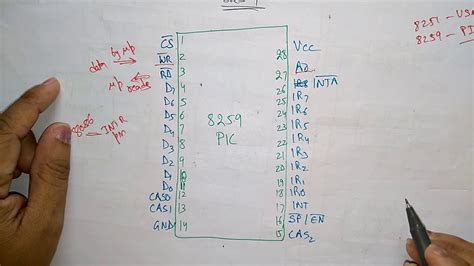 8251 - USA
8259 - PI
CS 1
WR 2
RD 3
D7 4
D6 5
D5 6
D4 7
D3 8
D2 9
D1 10
D0 11
CAS0 12
CAS1 13
GND 14
8259
PIC
28 Vcc
27 A0
26 INTA
25 IR7
24 IR6
23 IR5
22 IR4
21 IR3
20 IR2
19 IR1
18 IR0
17 INT
16 SP/EN
15 CAS2
data by μp
μp reads
8086
INTR
pin